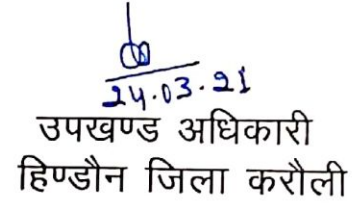 24.03.21
उपखण्ड अधिकारी
हिण्डौन जिला करौली